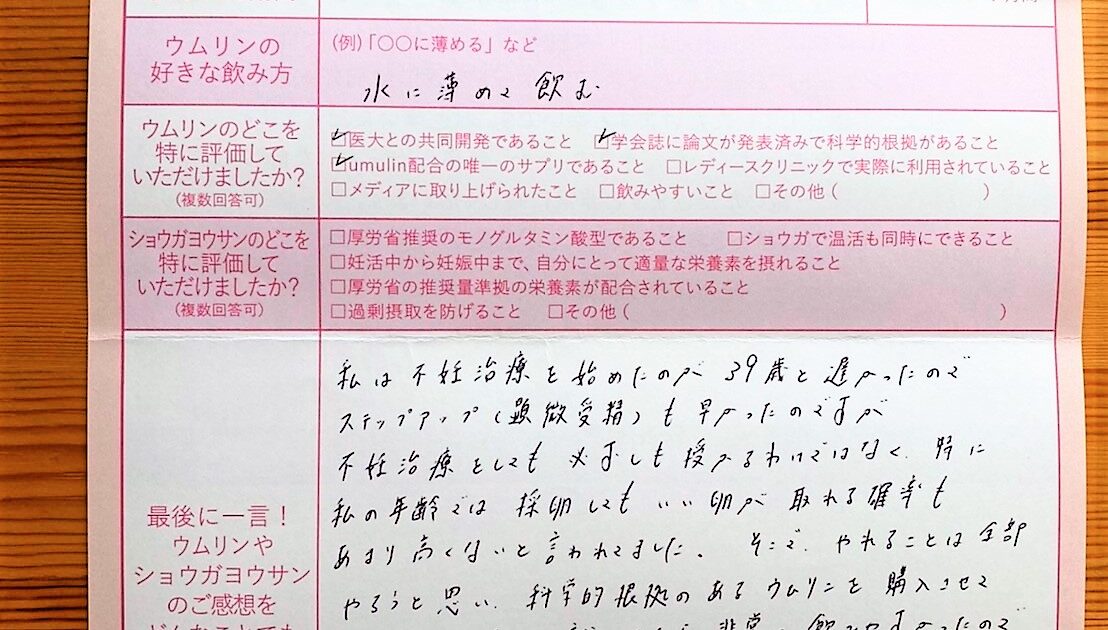 ウムリンの
好きな飲み方
(例)「〇〇に薄める」など
水に薄めて飲む
ウムリンのどこを
特に評価して
いただけましたか?
(複数回答可)
☑医大との共同開発であること ☑学会誌に論文が発表済みで科学的根拠があること
☑umulin配合の唯一のサプリであること □レディースクリニックで実際に利用されていること
□メディアに取り上げられたこと □飲みやすいこと □その他( )
ショウガヨウサンのどこを
特に評価して
いただけましたか?
(複数回答可)
□厚労省推奨のモノグルタミン酸型であること □ショウガで温活も同時にできること
□妊活中から妊娠中まで、自分にとって適量な栄養素を摂れること
□厚労省の推奨量準拠の栄養素が配合されていること
□過剰摂取を防げること □その他( )
最後に一言!
ウムリンや
ショウガヨウサン
のご感想を
どんなことでも
私は不妊治療を始めたのが39歳と遅かったので
ステップアップ(顕微受精)も早かったのですが
不妊治療をしても必ずしも授かるわけではなく、特に
私の年齢では採卵してもいい卵が取れる確率も
あまり高くないと言われてました。そこで、やれることは全部
やろうと思い、科学的根拠のあるウムリンを購入させて
非常に飲みやすかったので